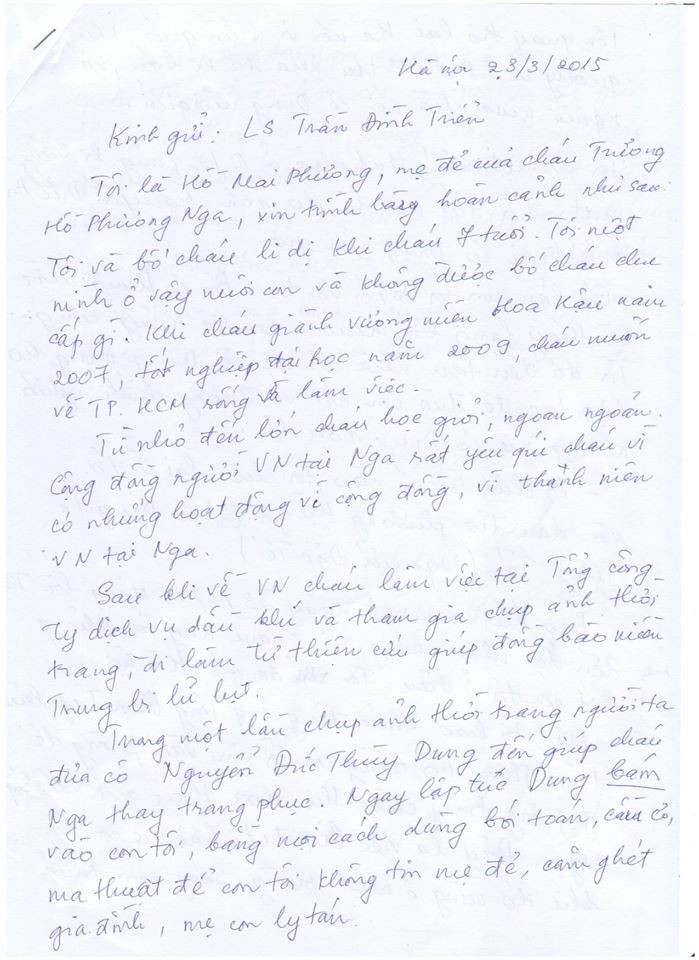 Hà nội 23/3/2015
Kính gửi: LS Trần Đình Triển
Tôi là Hồ Mai Phương, mẹ đẻ của cháu Trương
Hồ Phương Nga, xin trình bày hoàn cảnh như sau:
Tôi và bố cháu li dị khi cháu 7 tuổi. Tôi một
mình ở vậy nuôi con và không được bố cháu chu
cấp gì. Khi cháu giành vương miện Hoa Hậu năm
2007, tốt nghiệp đại học năm 2009, cháu muốn
về TP. HCM sống và làm việc.
Từ nhỏ đến lớn cháu học giỏi, ngoan ngoãn.
Cộng đồng người VN tại Nga rất yêu quí cháu vì
có những hoạt động vì cộng đồng, vì thanh niên
VN tại Nga.
Sau khi về VN cháu làm việc tại Tổng công
ty dịch vụ dầu khí và tham gia chụp ảnh thời
trang, đi làm từ thiện cứu giúp đồng bào miền
Trung bị lũ lụt.
Trong một lần chụp ảnh thời trang người ta
đưa cô Nguyễn Đức Thùy Dung đến giúp cháu
Nga thay trang phục. Ngay lập tức Dung bám
vào con tôi, bằng mọi cách dùng bói toán,
ma thuật để con tôi không tin mẹ đẻ, căm ghét
gia đình, mẹ con ly tán.